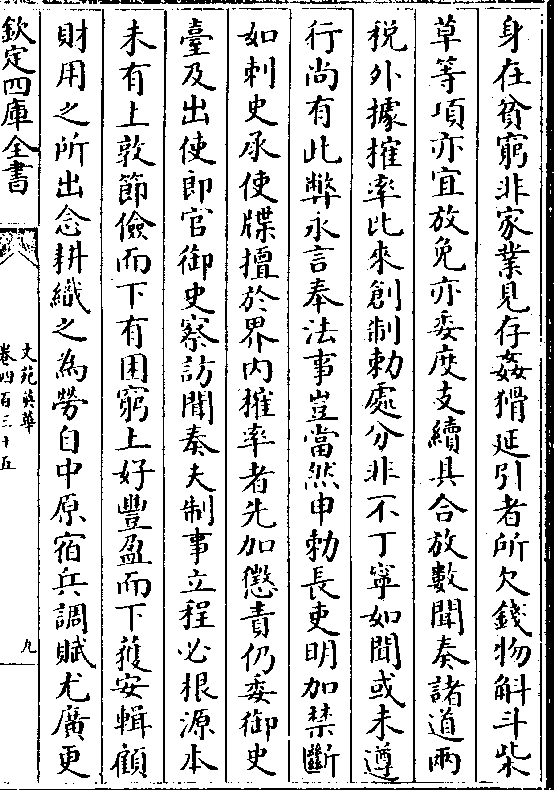 身在貧窮非家業見存姦猾延引者所欠錢物斛斗柴
草等項亦宜放免亦委度支續具合放數聞奏諸道兩
稅外據搉率比來創制勅處分非不丁寧如聞或未遵
行尚有此弊永言奉法事豈當然申勅長吏明加禁斷
如刺史承使牒擅於界內搉率者先加懲責仍委御史
臺及出使郎官御史察訪聞奏夫制事立程必根源本
未有上敦節儉而下有困窮上好豐盈而下獲安輯顧
財用之所出念耕織之為勞自中原宿兵調賦尤廣更
欽定四庫全書
文苑英華
卷四百三十五
九